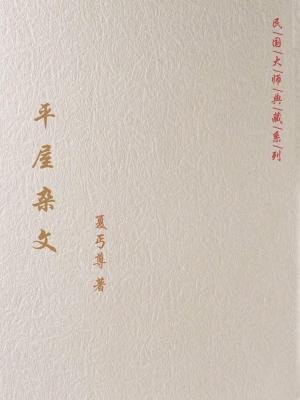 民国大师典藏系列
平屋杂文
夏丏尊 著